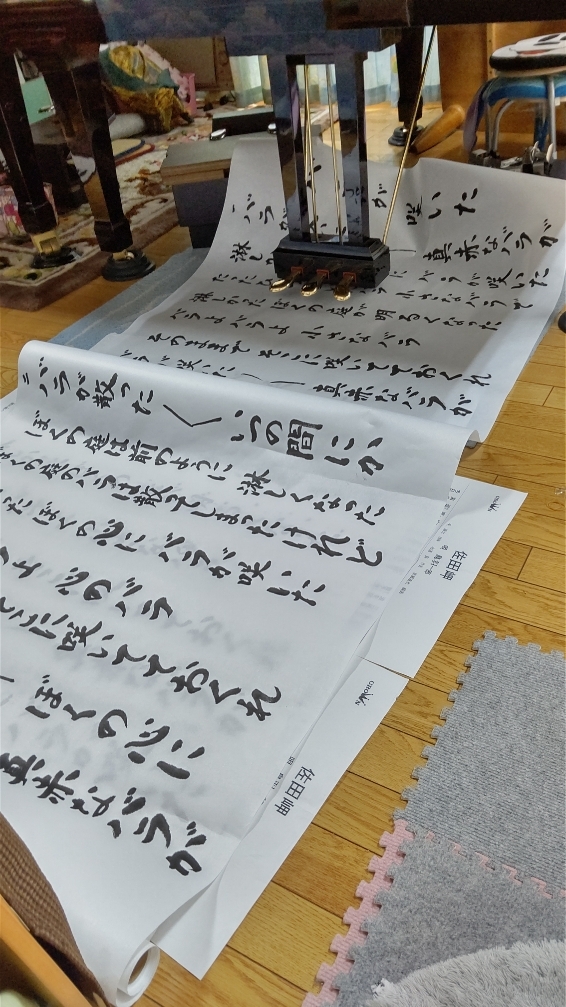 一 バラが が 咲いた
真赤なバラが
淋し に バラが咲いた
小さなバラで
淋しかった ぼくの庭が 明るくなった
バラよバラよ 小さなバラ
そのままで そこに咲いておくれ
バラが咲いた 〱 真赤なバラが
二 バラが散った 〱 いつの間にか
ぼくの庭は前のように 淋しくなった
ぼくの庭のバラは散ってしまったけれど
ったぼくの心に バラが咲いた
よ 心のバラ
そこに咲いておくれ
ぼくの心に
真赤なバラが
CROWN
佐田岬
CROWN
佐田岬